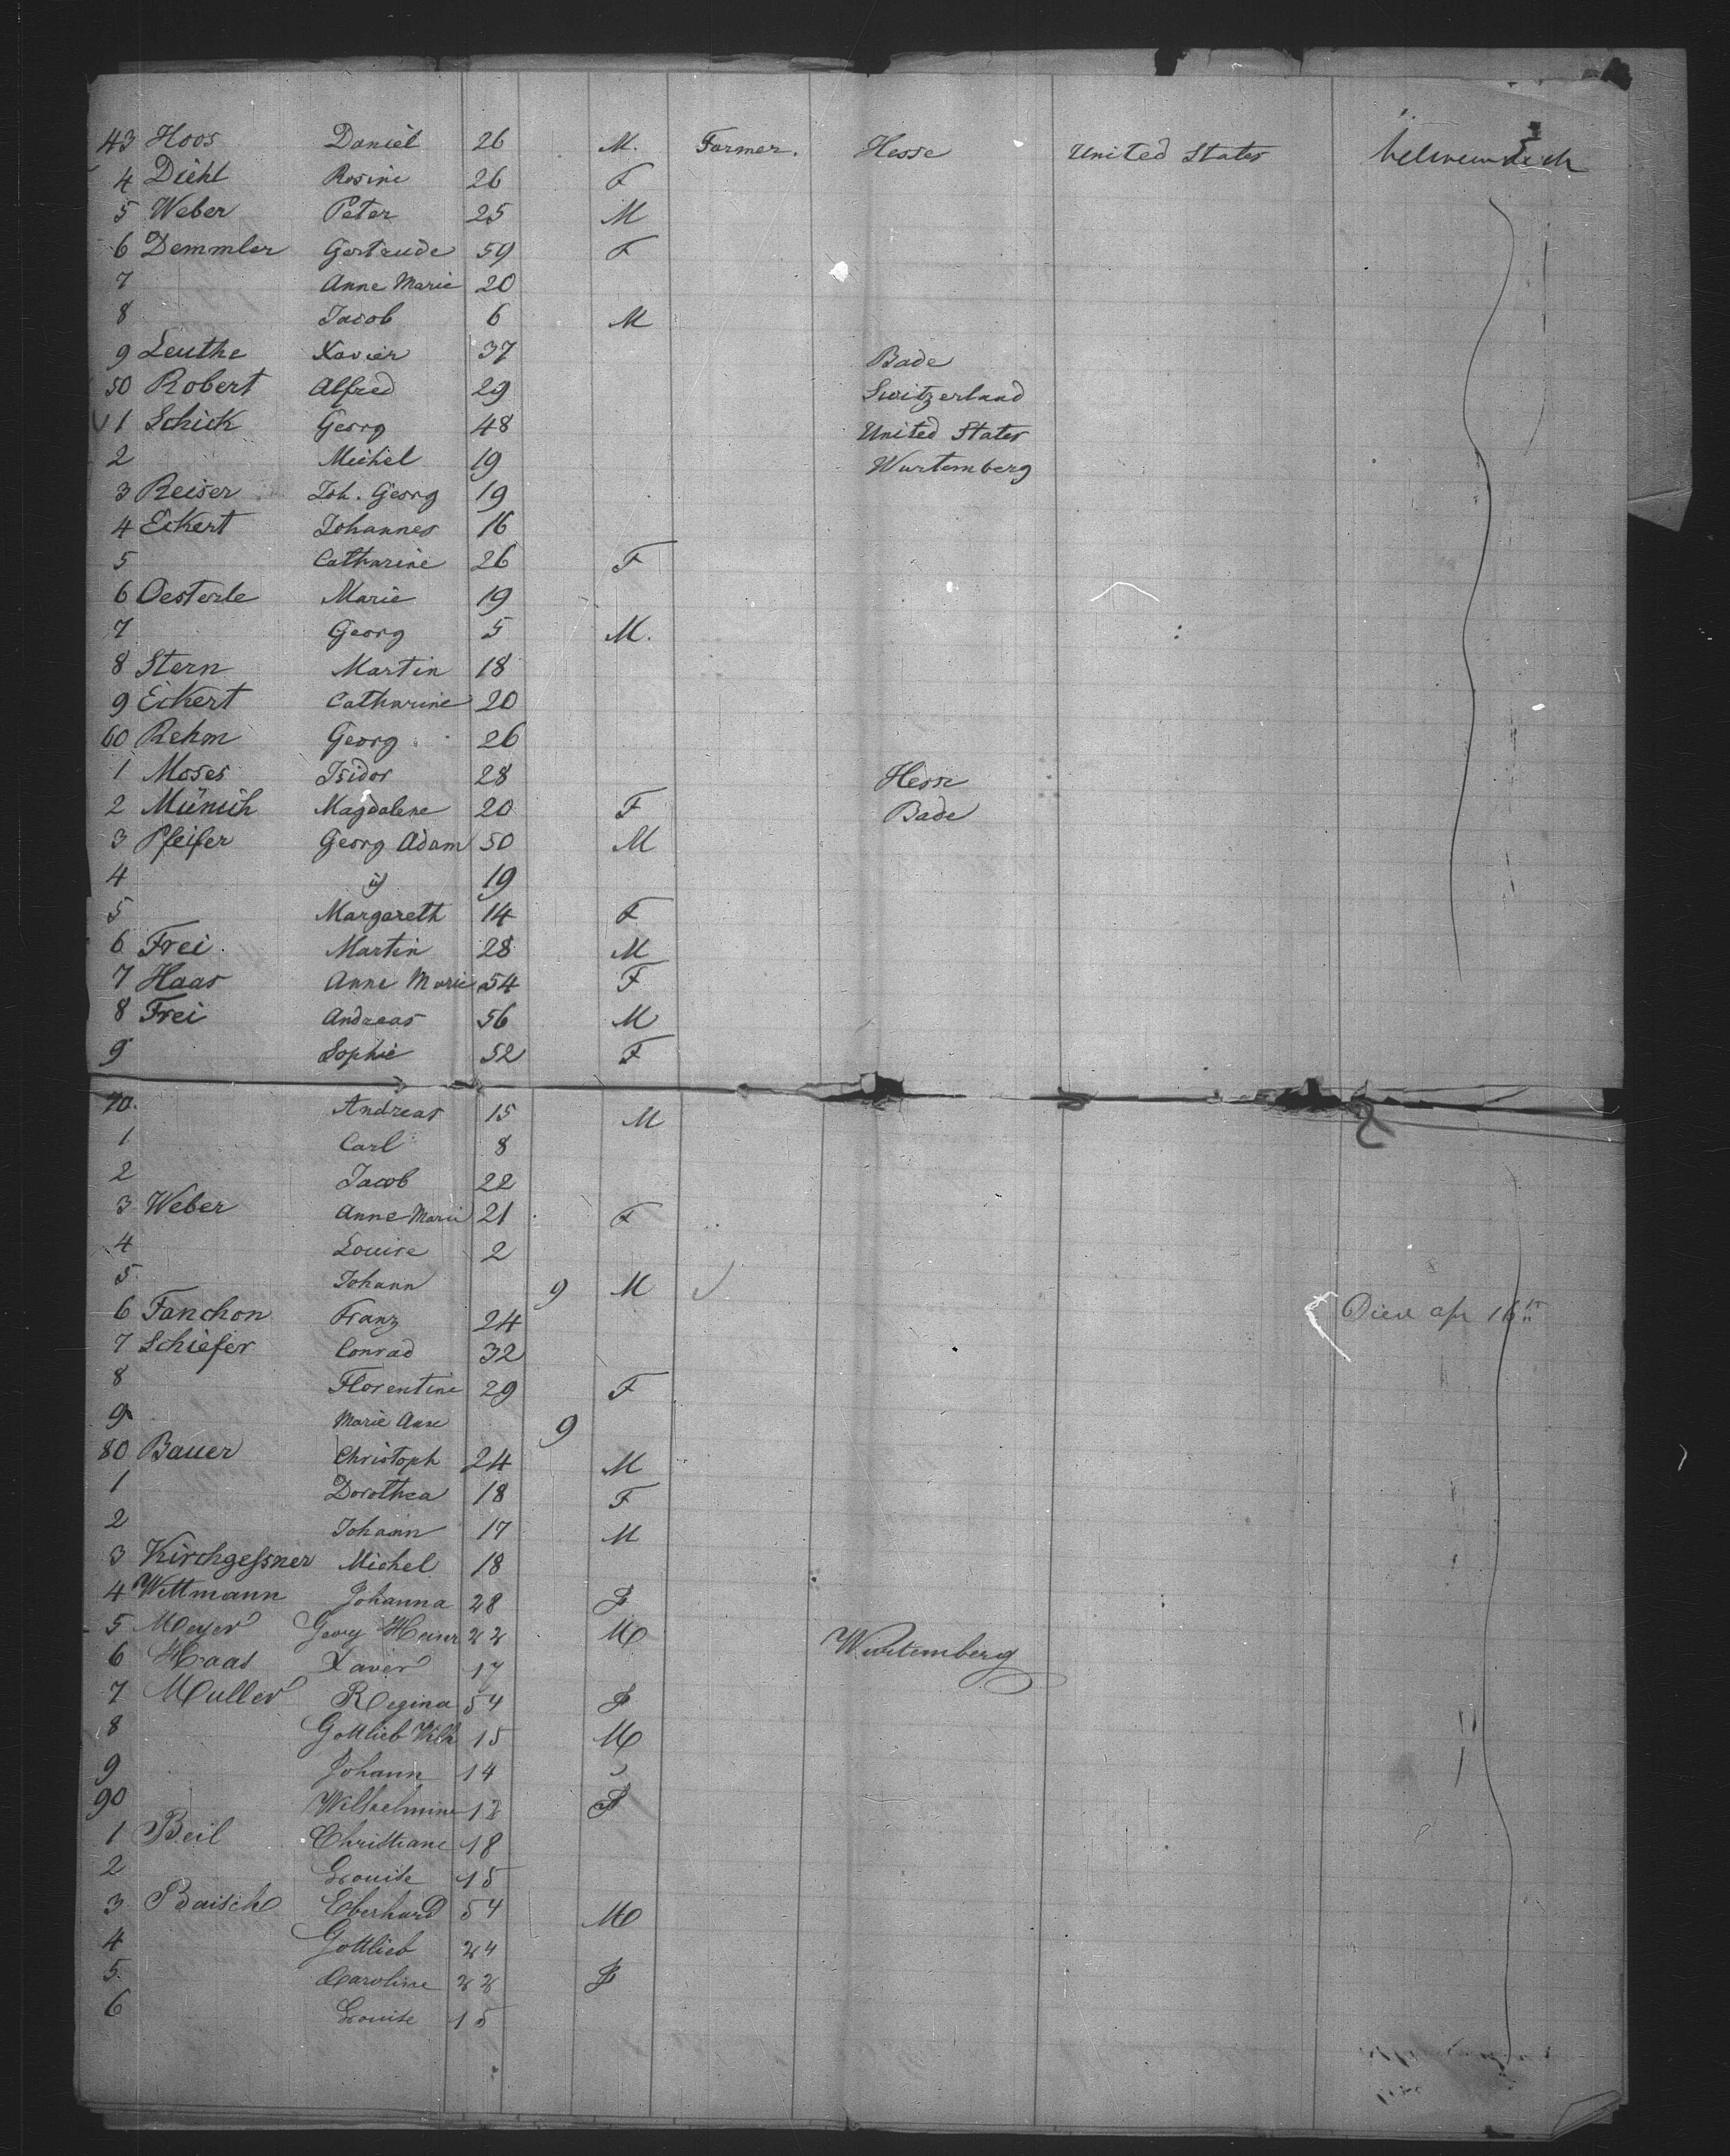 43 Hoos Daniel 26 M. Farmer. Hesse United States
4 Diehl Rosine 26 F
5 Weber Peter 25 M
6 Demmler Gertrude 59 F
7 Anne Marie 20
8 Jacob 6 M
9 Leuthe Xavier 37 Bade
50 Robert Alfred 29 Switzerland
1 Schick Georg 48 United States
2 Michel 19 Wurtemberg
3 Reiser Joh. Georg 19
4 Eckert Johannes 16
5 Catharine 26 F
6 Oesterle Marie 19
7 Georg 5 M.
8 Stern Martin 18
9 Eckert Catharine 20
60 Rehm Georg 26
1 Moses Isidor 28 Hesse
2 Münich Magdalene 20 F Bade
3 Pfeifer Georg Adam 50 M
4 id 19
5 Margareth 14 F
6 Frei Martin 28 M
7 Haas Anne Marie 54 F
8 Frei Andreas 56 M
9 Sophie 52 F
70. Andreas 15 M
1 Carl 8
2 Jacob 22
3 Weber Anne Marie 21 F
4 Louise 2
5 Johann 9 M
6 Fanchon Franz 24 Died apr 16th
7 Schiefer Conrad 32
8 Florentine 29 F
9 Marie Anne 9
80 Bauer Christoph 24 M
1 Dorothea 18 F
2 Johann 17 M
3 Kirchgeſsner Michel 18
4 Wittmann Johanna 28 F
5 Meyer Georg Heinr 22 M Wurtemberg
6 Haas Xaver 17
7 Muller Regina 54 F
8 Gottlieb Wilh 15 M
9 Johann 14
90 Wilhelmine 12 F
1 Beil Christiane 18
2 Louise 15
3 Baisch Eberhard 54 M
4 Gottlieb 24
5. Caroline 22 F
6 Louise 15